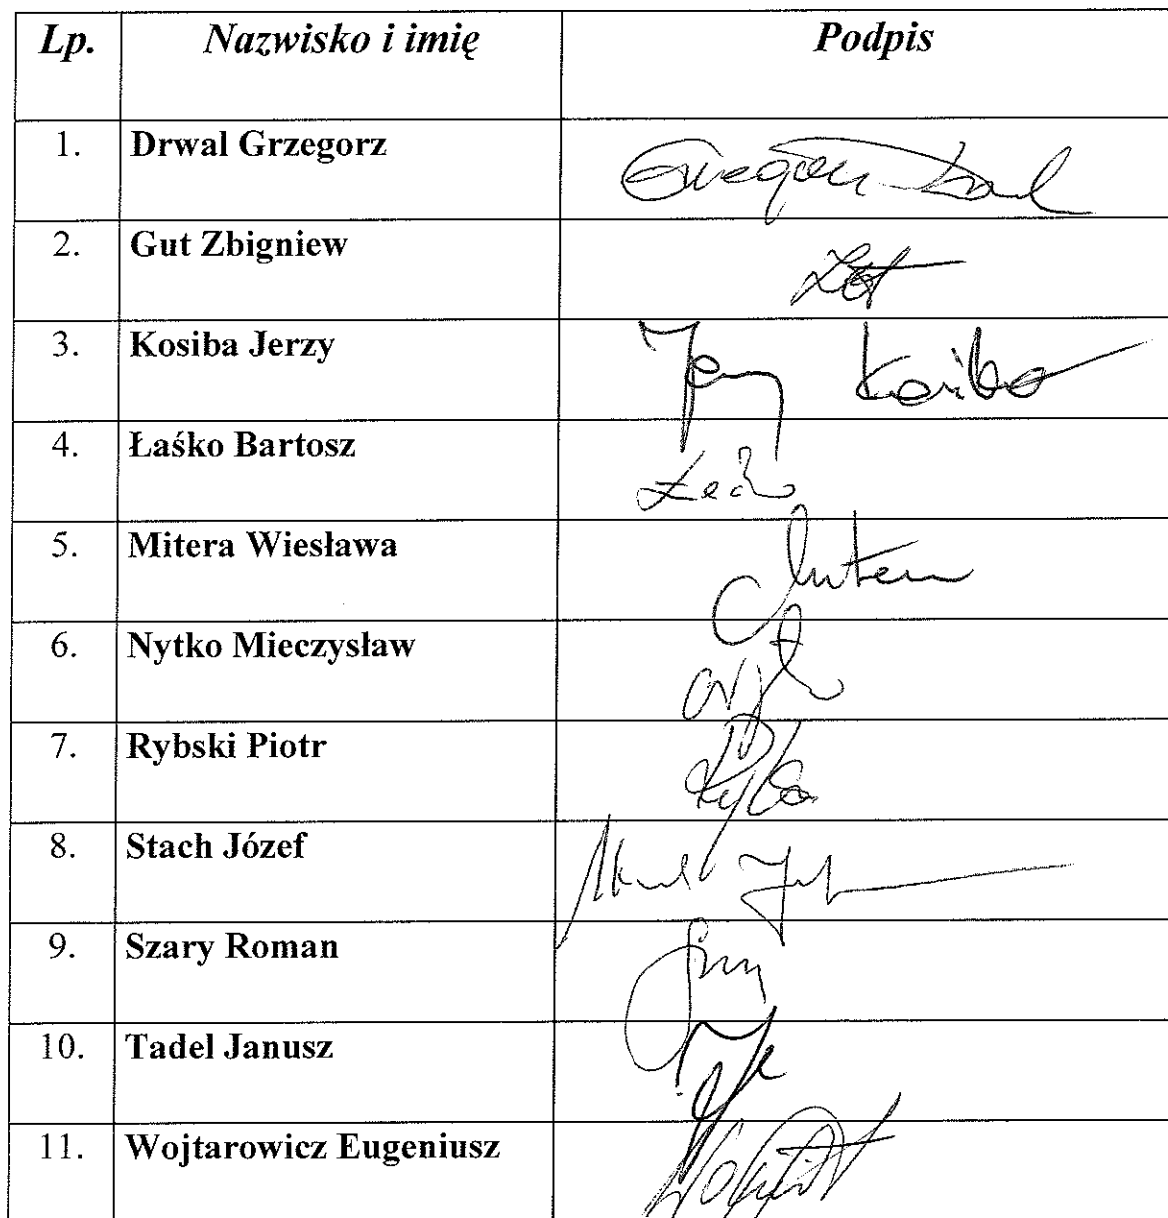 Lp. Nazwisko i imię Podpis
1. Drwal Grzegorz
2. Gut Zbigniew
3. Kosiba Jerzy Jerzy Kosiba
4. Łaśko Bartosz
5. Mitera Wiesława
6. Nytko Mieczysław
7. Rybski Piotr
8. Stach Józef
9. Szary Roman
10. Tadel Janusz
11. Wojtarowicz Eugeniusz